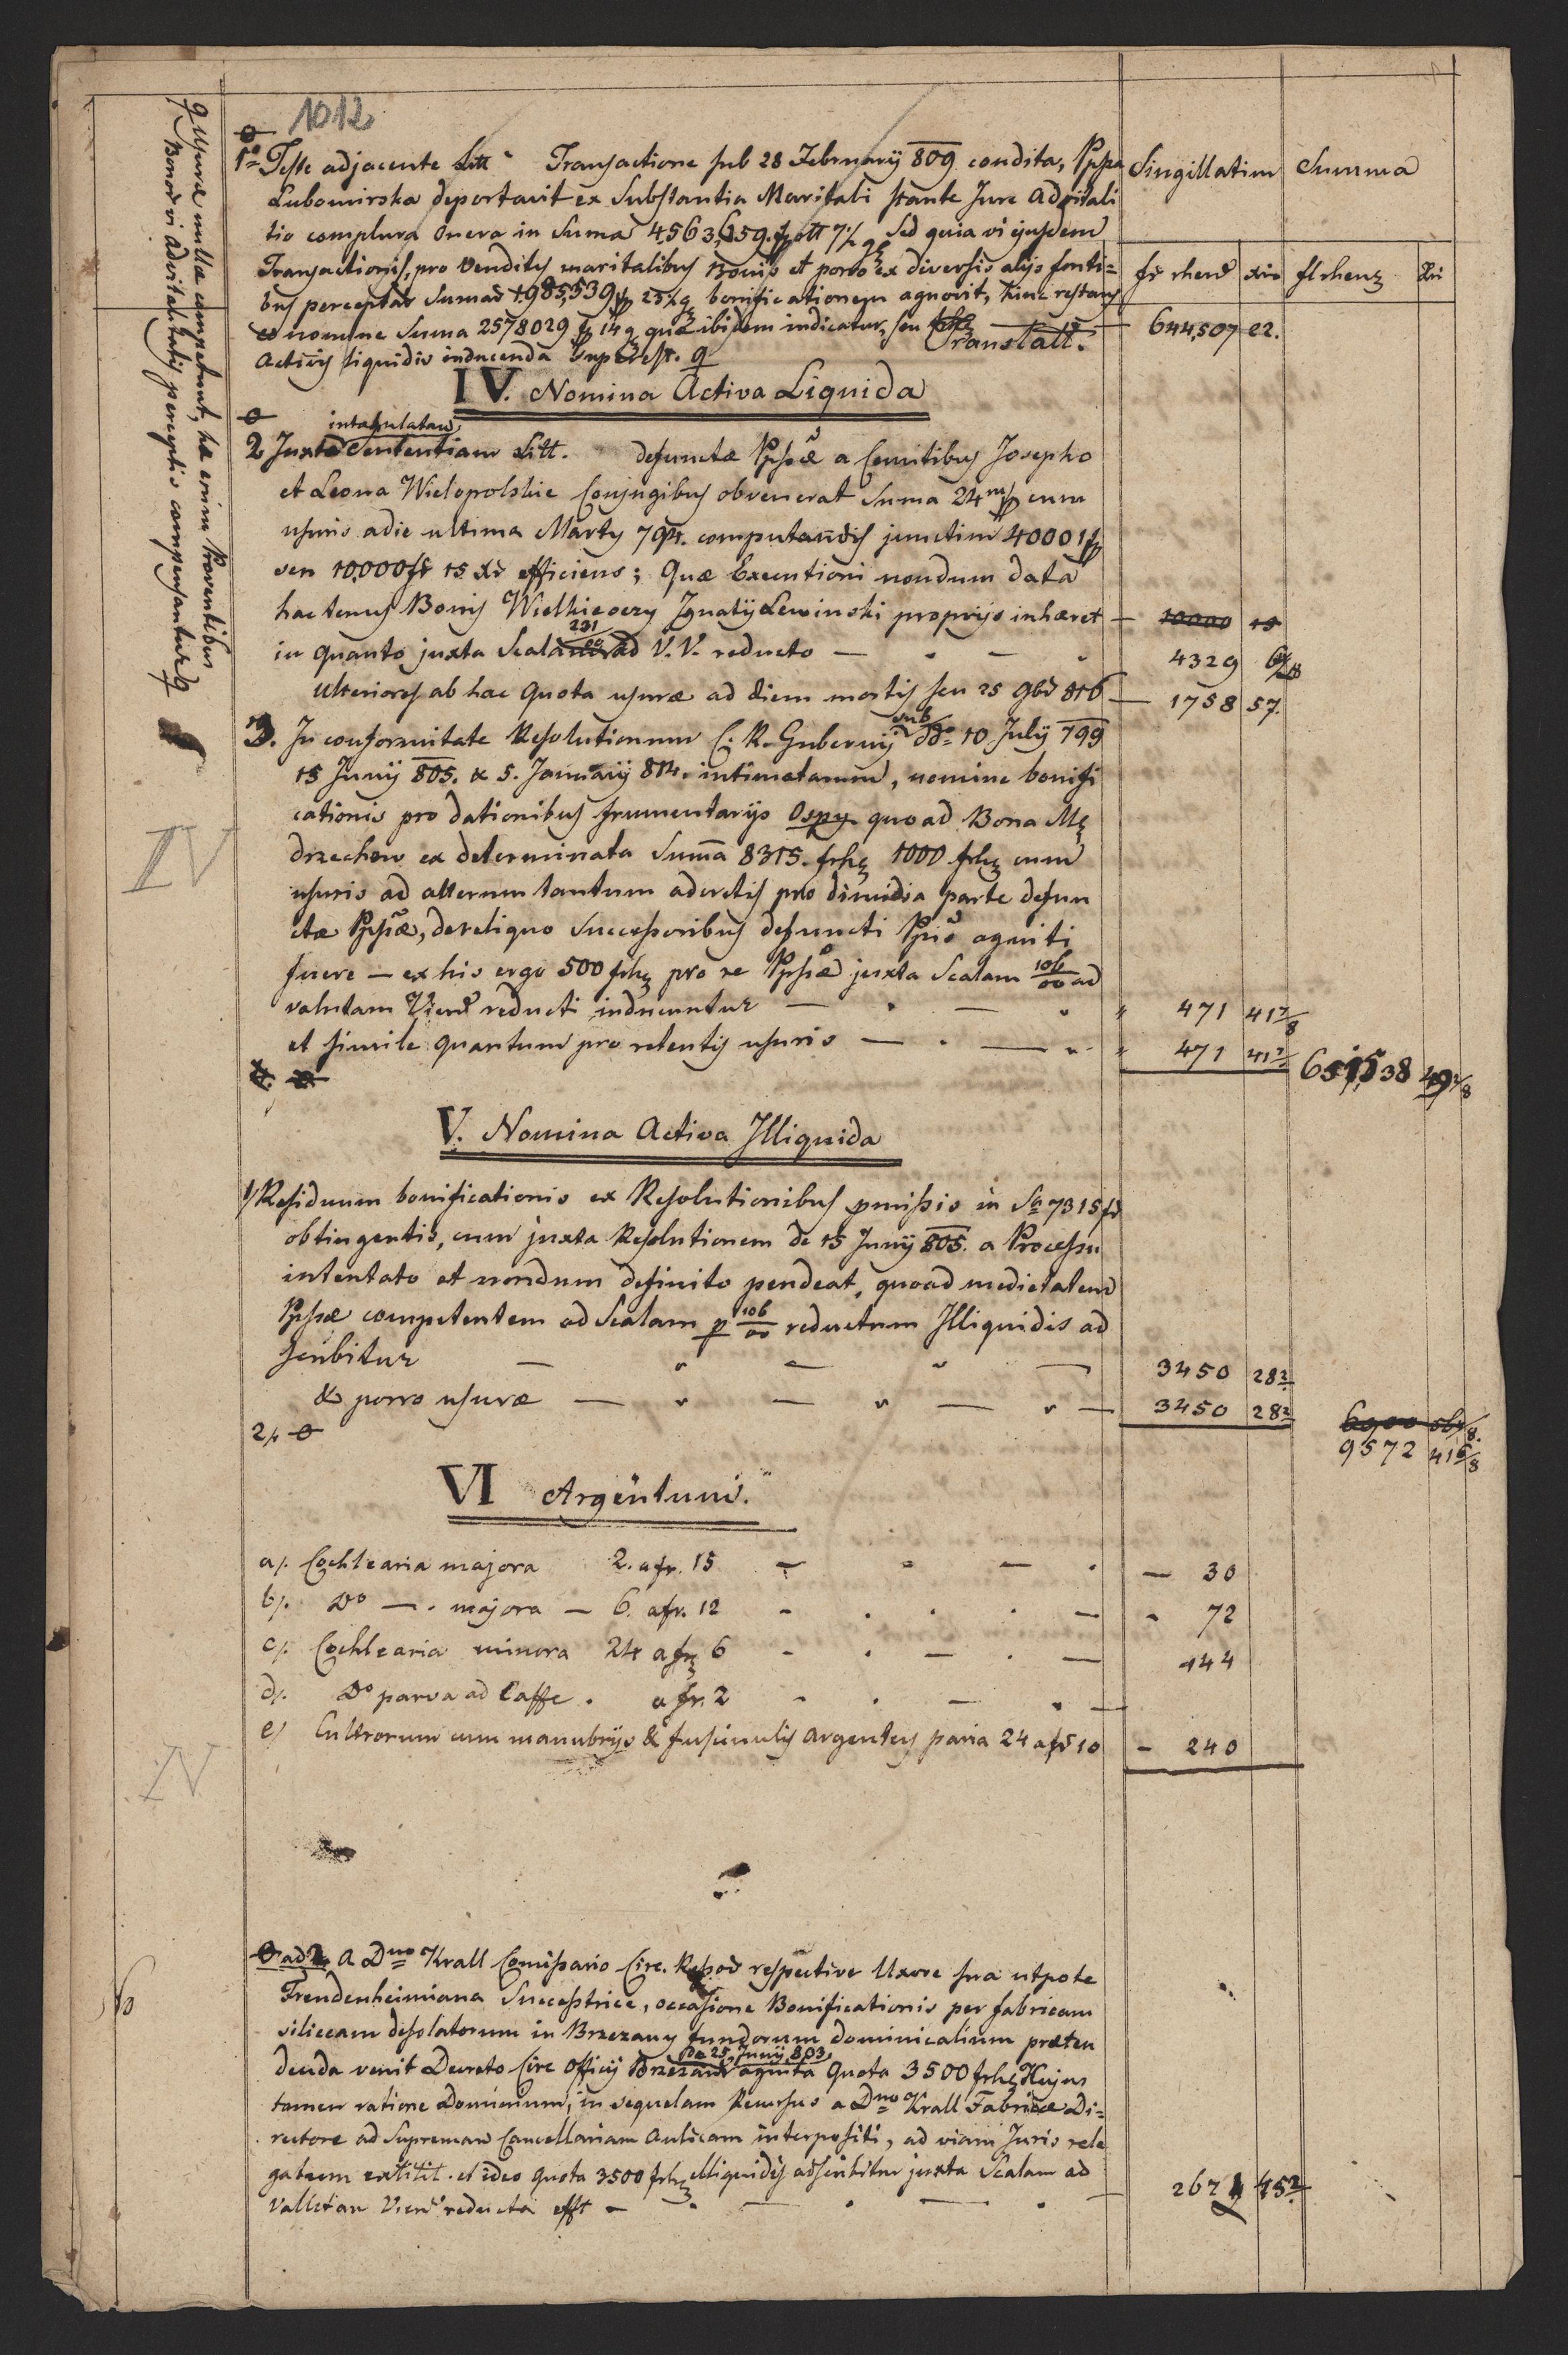 1012
Singillatim Summa
fr rhen xr fl rhen Xri
1º Teste adjacente Litt Transactione sub 28 Februarÿ 809 condita, Ppssa
Lubomirska deportavit ex Substantia Maritali stante Jure Advitali
tio complura Onera in Suma 4,563,659. fp ott 7½ g Sed quia vi ejusdem
Transactionis, pro Venditis maritalibus Bonis et porro ex diversis alÿs fonti=
bus perceptas Sumas 1985,539 fp 23½ g bonificationem agnovit, hinc restans
eo nomine Suma 2578029 fp 14 g quæ ibidem indicatur, seu — 644,507 22.
Activis liquidis inducenda Superest. Translatt.
q Usuræ nullæ competunt, hæ enim Proventibus
Bonor vi advitalitatis perceptis compensantur
IV. Nomina Activa Liquida
intabulatam
2 Juxta Sententiam Litt. defunctæ Ppssæ a Comitibus Josepho
et Leona Wielopolskie Conjugibus obvenerat Suma 24m fp cum
usuris a die ultima Marty 794. computandis junctim 40001 fp
seu 10,000 fr 15 Xr efficiens; Quæ Executioni nondum data
hactenus Bonis Wielkieoczy Ignatÿ Lewinski proprÿs inhæret — 10000 15
in quanto juxta Scalam 231 ad V. V. reducto — 4329 6
Ulteriores ab hac Quota usuræ ad diem mortis seu 25 9br 816 — 1758 57.
3. In conformitate Resolutionum C. R. Gubernÿ sub ddo 10 July 799
15 Junÿ 805. & 5. Januarÿ 814. intimatarum, nomine bonifi
cationis pro dationibus frumentarÿs Ospy quoad Bona Mę
drzechow ex determinata Suma 8315. frh 1000 frh cum
usuris ad alterum tantum adauctis pro dimidia parte defun
ctæ Ppssæ, de reliquo Successoribus defuncti Ppis agniti
fuere — ex his ergo 500 frh pro re Ppssæ juxta Scalam 106/00 ad
valutam Vien reducti inducuntur — 471 41 7/8
et simile quantum pro retentis usuris — 471 41 7/8 651538 49 2/8
IV
V. Nomina Activa Illiquida
1/ Residuum bonificationis ex Resolutionibus pmissis in Sa 7315 fr
obtingentis, cum juxta Resolutionem de 15 Junÿ 805. a Processu
intentato et nondum definito pendeat, quoad medietatem
Ppssæ competentem ad Scalam p 106/00 reductum Illiquidis ad
scribitur — 3450 28 2
& porro usuræ — 3450 28 2
2/. 6900 56
9572 41 6/8
VI Argentum.
a/. Cochlearia majora 2. a fr. 15 — 30
b/. Do — . majora — 6. a fr. 12 — 72
c/. Cochlearia minora 24 a fr 6 — 144
d/. Do parva ad Caffe . a fr. 2 —
e/ Cultrorum cum manubrÿs & fuscinulis argenteis paria 24 a fr 10 — 240
IV
ad 2. A Dno Krall Comissario Circ. respective Uxore sua utpote
Freudenheimiana Successtrice, occasione Bonificationis per fabricam
siliceam desolatorum in Brzezany fundorum dominicalium præten
denda venit Decreto Circ Officÿ Brzezan de 25. Junÿ 803 agnita Quota 3500 frh Hujus
tamen ratione Dominium, in sequelam Recursus a Dno Krall Fabricæ Di=
rectore ad Supremam Cancellariam Aulicam interpositi, ad viam Juris rele
gatum extitit. et ideo quota 3500 frh illiquidis adscribitur juxta Scalam ad
vallutam Vien reducta efft — 2671 45 2